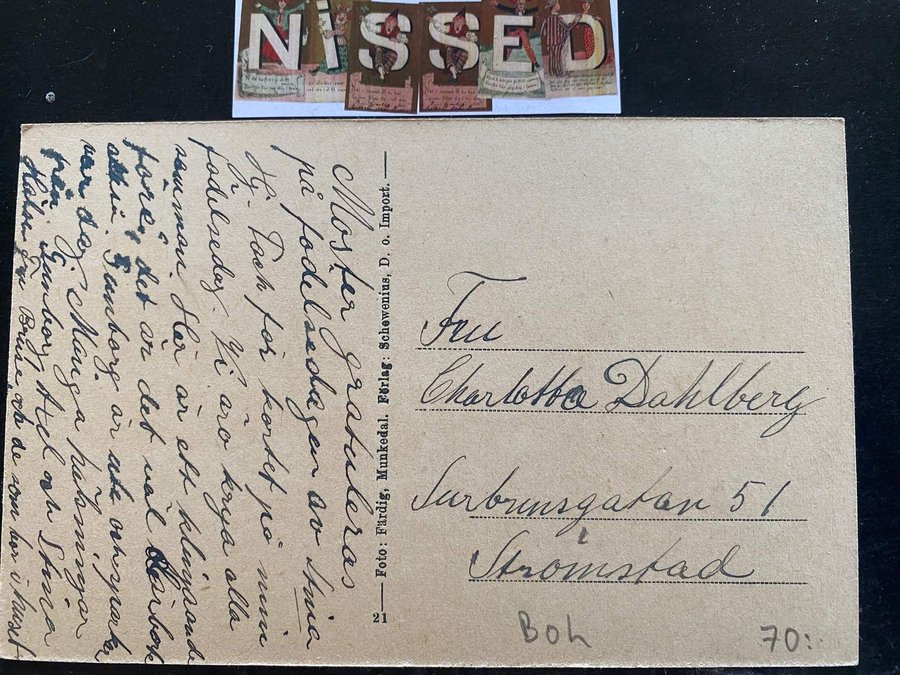 NISSED
Moster gratuleras
på födelsedagen av Stina
Hj. Tack för kortet på min
födelsedag. Vi äro krya alla
samman. Här är ett klingande
före, det är det väl
också. Gunborg är ute och
var dag Många hälsningar
från Gunborg Axel och Stina
Hälsa och de som bor i huset
21 — Foto: Färdig, Munkedal. Förlag: Schewenius, D. o. Import. —
Fru
Charlotta Dahlberg
Surbrunsgatan 51
Strömstad
Boh
70:-